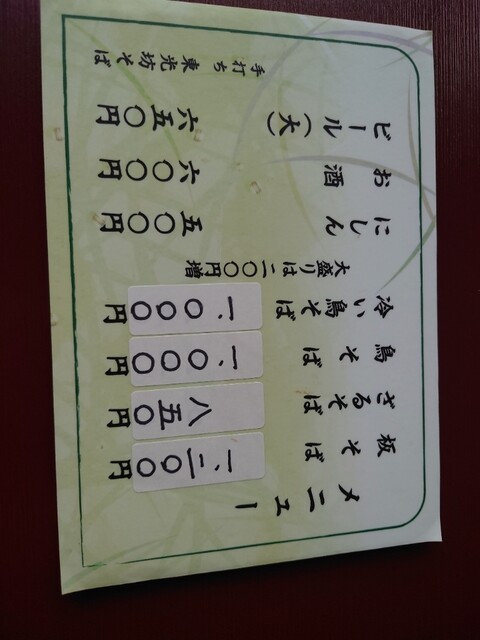 メニュー
板そば 一、二〇〇円
ざるそば 八五〇円
鳥そば 一、〇〇〇円
冷い鳥そば 一、〇〇〇円
大盛りは二〇〇円増
にしん 五〇〇円
お酒 六〇〇円
ビール(大) 六五〇円
手打ち東光坊そば